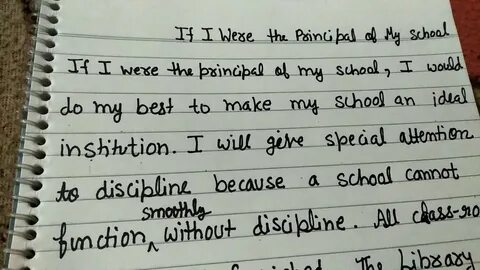 If I Were the Principal of My school
If I were the principal of my school, I would
do my best to make my school an ideal
institution. I will give special attention
to discipline because a school cannot
smoothly
function ^ without discipline. All class-roo
furnished. The Library